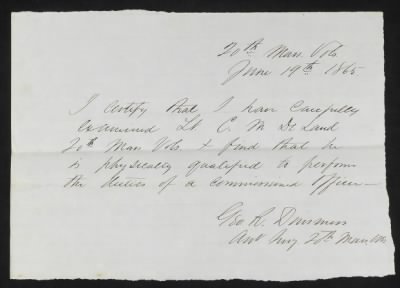 20th Mass Vols
June 19th 1865
I certify that I have carefully
examined Lt C. M. De Land
20th Mass Vols & find that he
is physically qualified to perform
the duties of a commissioned officer—
Geo R. Dinsmore
Asst Surg 20th Mass Vols